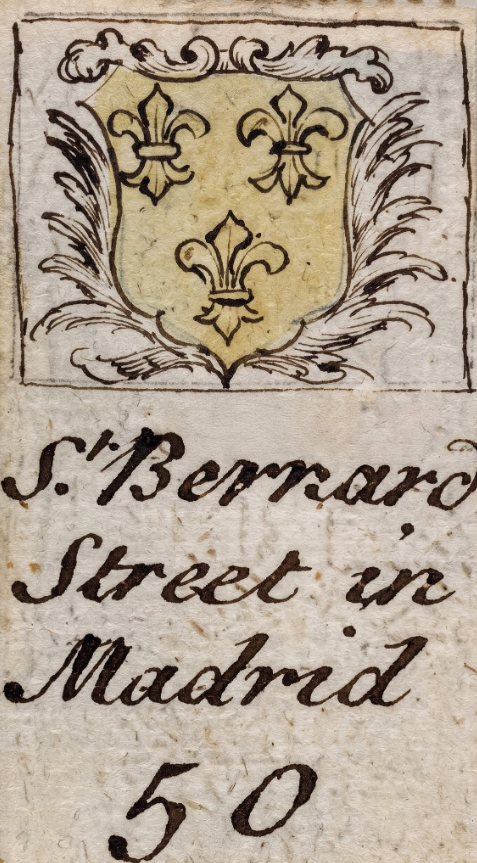 St. Bernard
Street in
Madrid
50